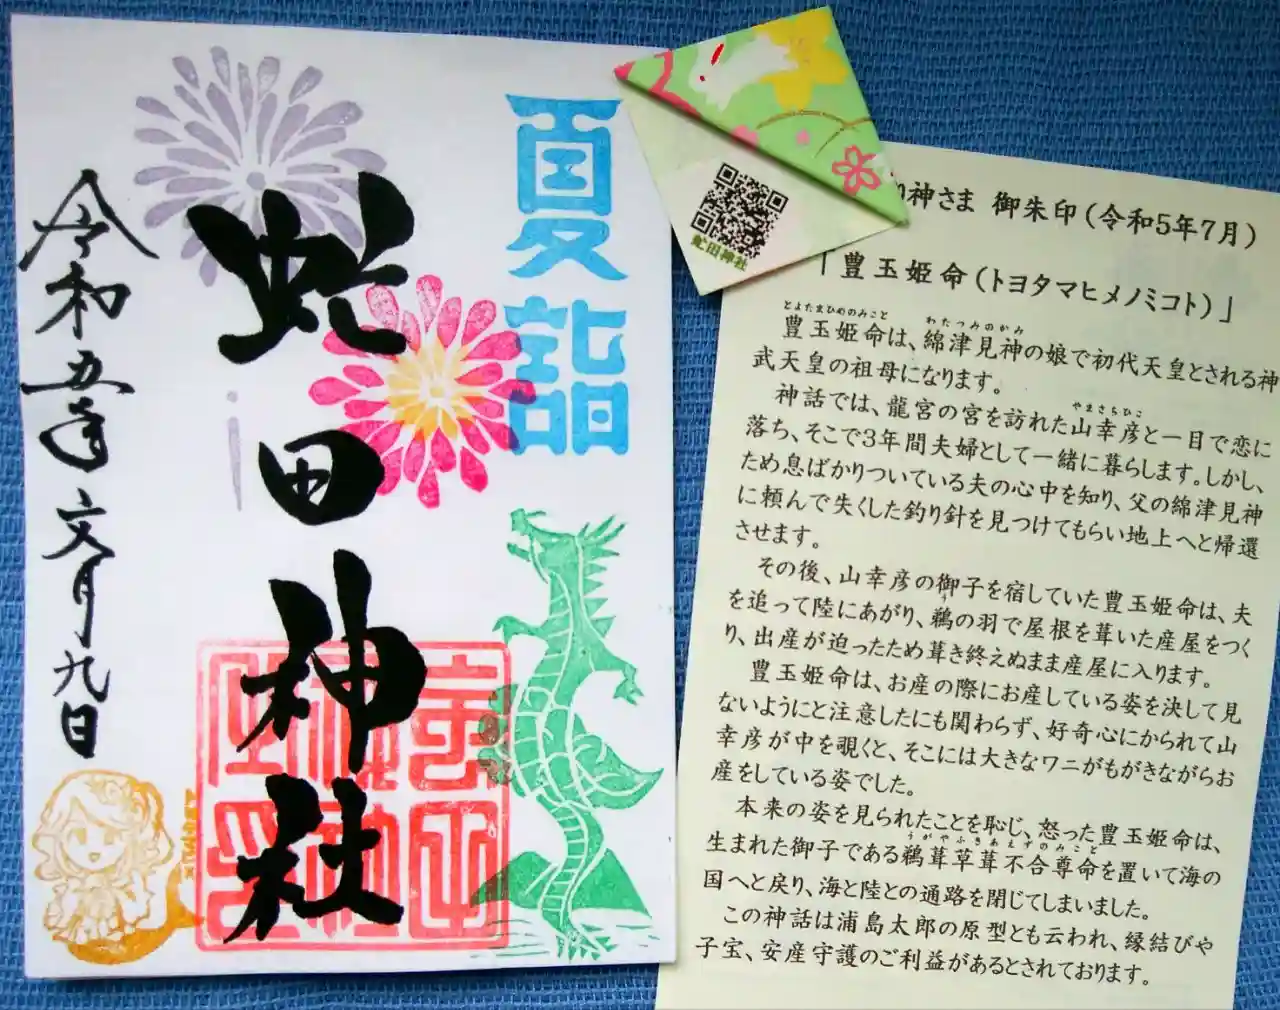 夏詣
虻田神社
令和五年文月九日
虻田神社
の神さま 御朱印(令和5年7月)
「豊玉姫命(トヨタマヒメノミコト)」
とよたまひめのみこと わたつみのかみ
豊玉姫命は、綿津見神の娘で初代天皇とされる神
武天皇の祖母になります。
やまさちひこ
神話では、龍宮の宮を訪れた山幸彦と一目で恋に
落ち、そこで3年間夫婦として一緒に暮らします。しかし、
ため息ばかりついている夫の心中を知り、父の綿津見神
に頼んで失くした釣り針を見つけてもらい地上へと帰還
させます。
その後、山幸彦の御子を宿していた豊玉姫命は、夫
う
を追って陸にあがり、鵜の羽で屋根を葺いた産屋をつく
り、出産が迫ったため葺き終えぬまま産屋に入ります。
豊玉姫命は、お産の際にお産している姿を決して見
ないようにと注意したにも関わらず、好奇心にかられて山
幸彦が中を覗くと、そこには大きなワニがもがきながらお
産をしている姿でした。
本来の姿を見られたことを恥じ、怒った豊玉姫命は、
うがやふきあえずのみこと
生まれた御子である鵜葺草葺不合尊命を置いて海の
国へと戻り、海と陸との通路を閉じてしまいました。
この神話は浦島太郎の原型とも云われ、縁結びや
子宝、安産守護のご利益があるとされております。